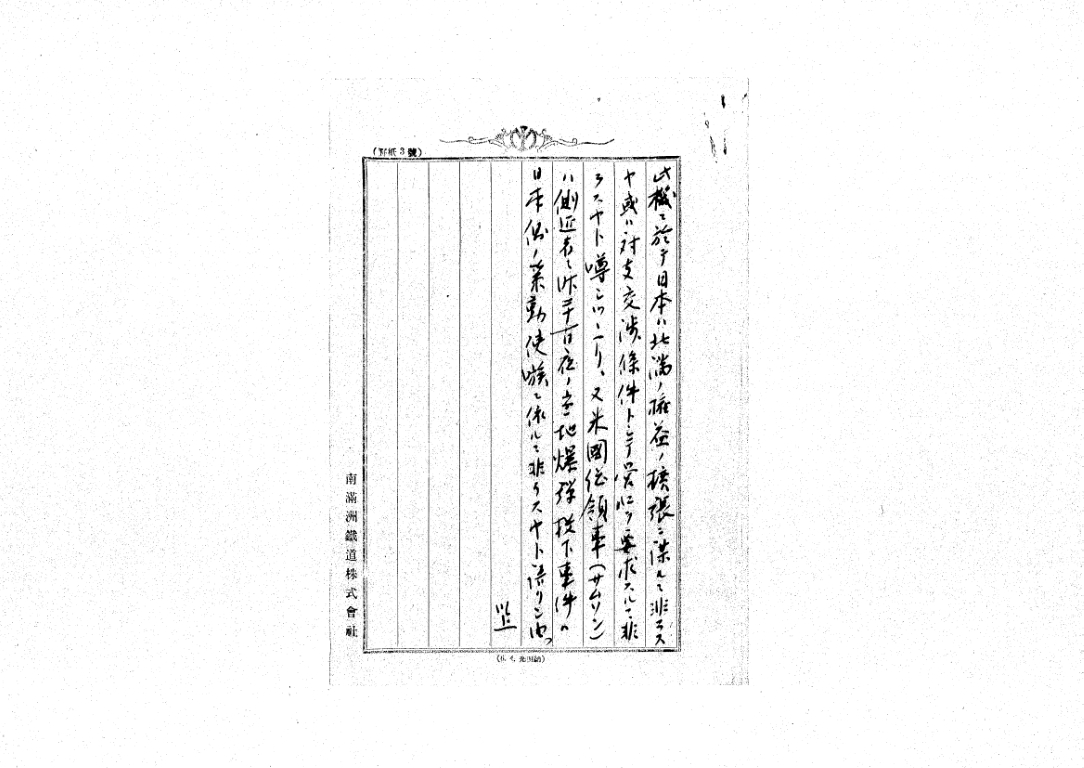 (野紙3號)
此機ニ於テ日本ハ北満ノ権益ノ擴張ニ深ルニ非ラス
ヤ或ハ対支交渉條件トシテ 要求スルニ非
ラスヤト噂シツヽアリ、又米國総領事(サムソン)
ハ側近者ニ昨三十一日夜ノ 地爆弾投下事件ハ
日本側ノ策動使嗾ニ依ルニ非ラスヤト語リシ由
以上
南滿洲鐵道株式會社